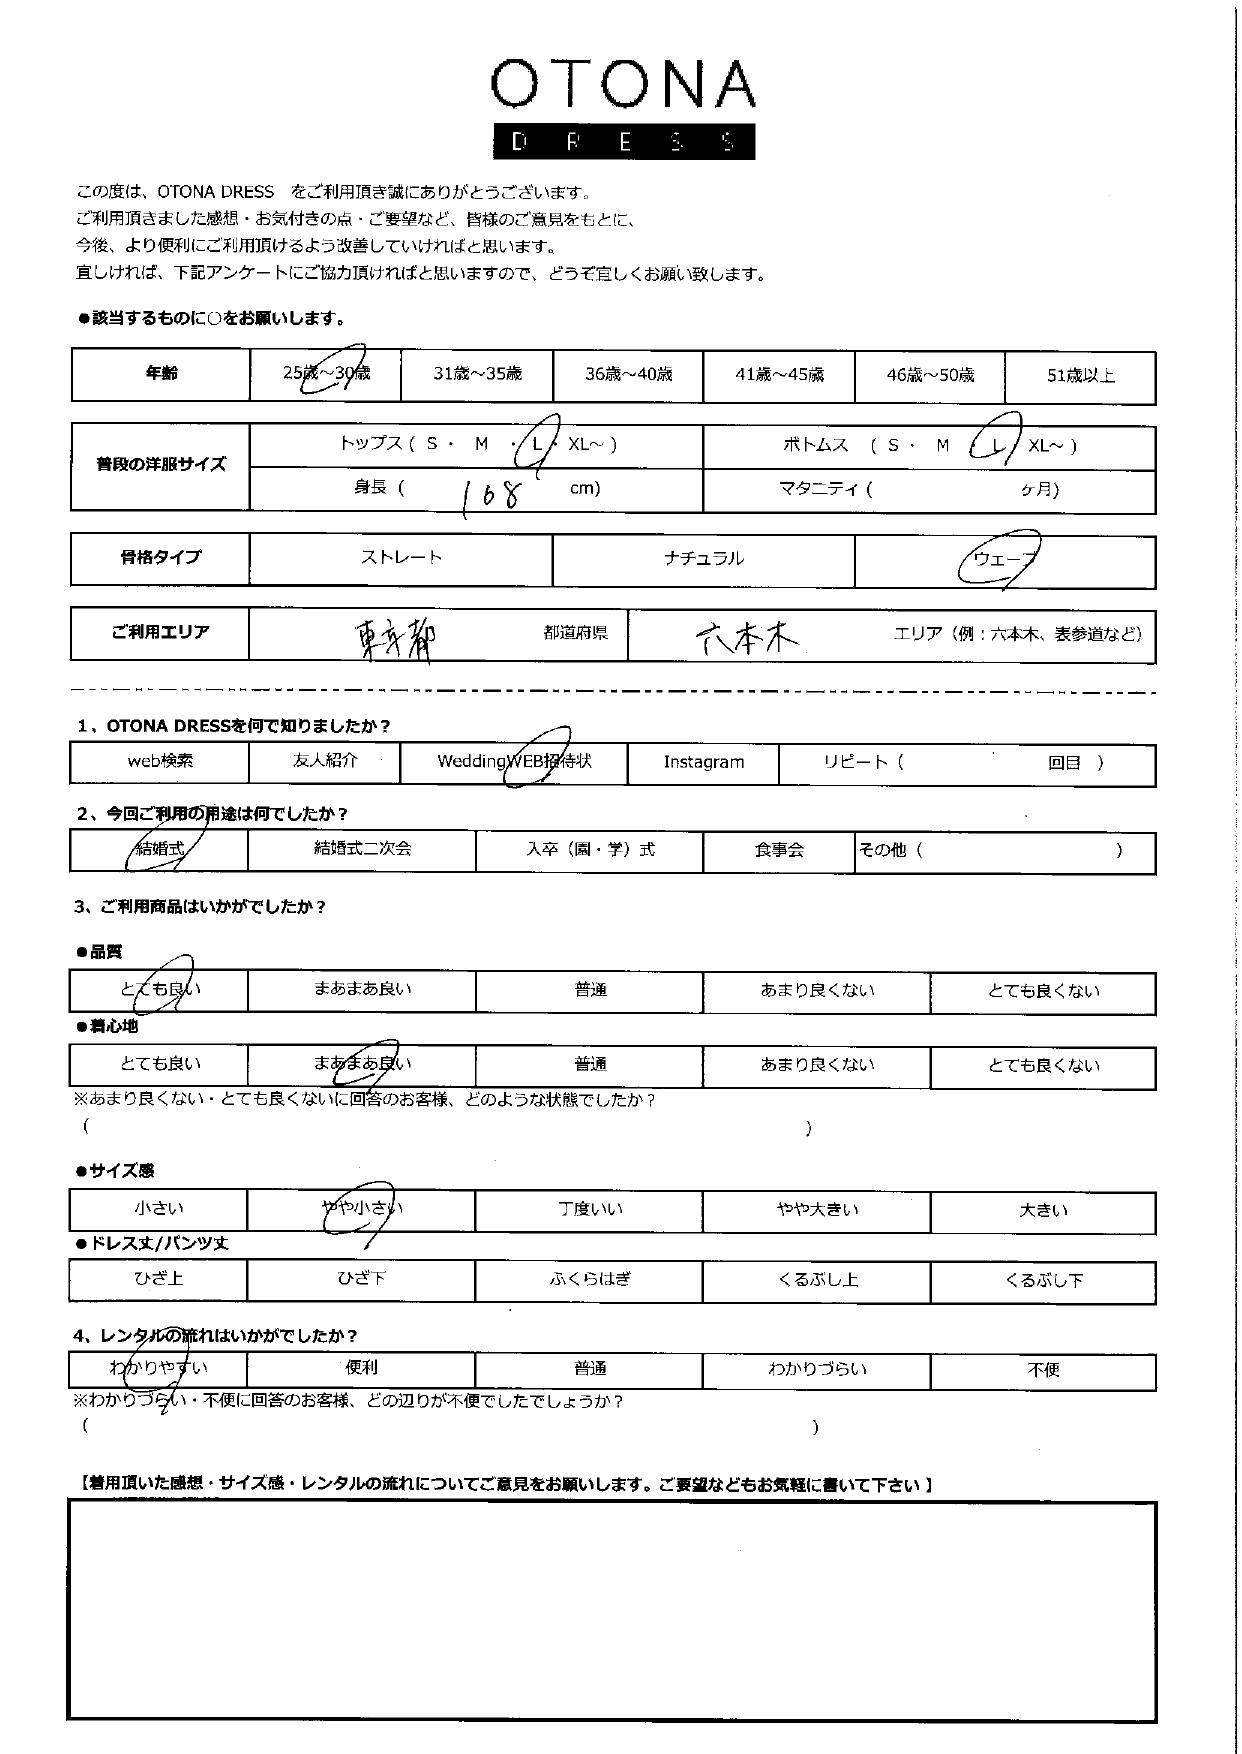 OTONA
DRESS
この度は、OTONA DRESS　をご利用頂き誠にありがとうございます。
ご利用頂きました感想・お気付きの点・ご要望など、皆様のご意見をもとに、
今後、より便利にご利用頂けるよう改善していければと思います。
宜しければ、下記アンケートにご協力頂ければと思いますので、どうぞ宜しくお願い致します。
●該当するものに○をお願いします。
年齢 25歳～30歳 31歳～35歳 36歳～40歳 41歳～45歳 46歳～50歳 51歳以上
普段の洋服サイズ
トップス ( S ・ M ・ L ・ XL～ ) ボトムス ( S ・ M ・ L ・ XL～ )
身長 ( 168 cm) マタニティ ( ヶ月)
骨格タイプ ストレート ナチュラル ウェーブ
ご利用エリア 東京都 都道府県 六本木 エリア（例：六本木、表参道など）
1、OTONA DRESSを何で知りましたか？
web検索 友人紹介 WeddingWEB招待状 Instagram リピート（ 回目 ）
2、今回ご利用の用途は何でしたか？
結婚式 結婚式二次会 入卒（園・学）式 食事会 その他（ ）
3、ご利用商品はいかがでしたか？
●品質
とても良い まあまあ良い 普通 あまり良くない とても良くない
●着心地
とても良い まあまあ良い 普通 あまり良くない とても良くない
※あまり良くない・とても良くないに回答のお客様、どのような状態でしたか？
( )
●サイズ感
小さい やや小さい 丁度いい やや大きい 大きい
●ドレス丈/パンツ丈
ひざ上 ひざ下 ふくらはぎ くるぶし上 くるぶし下
4、レンタルの流れはいかがでしたか？
わかりやすい 便利 普通 わかりづらい 不便
※わかりづらい・不便に回答のお客様、どの辺りが不便でしたでしょうか？
( )
【着用頂いた感想・サイズ感・レンタルの流れについてご意見をお願いします。ご要望などもお気軽に書いて下さい 】